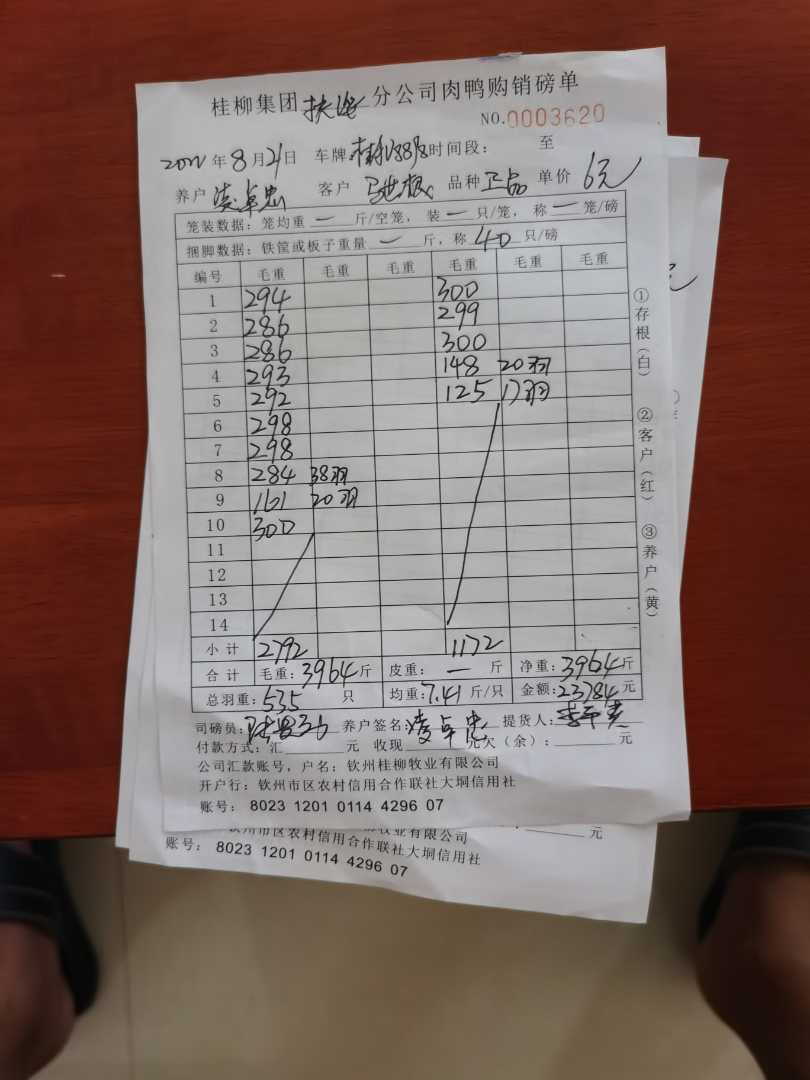 桂柳集团 分公司肉鸭购销磅单
NO.0003620
2022年8月21日 车牌 时间段: 至
养户 凌卓忠 客户 品种 正品 单价 6元
笼装数据: 笼均重 一 斤/空笼, 装 一 只/笼, 称 一 笼/磅
捆脚数据: 铁筐或板子重量 一 斤, 称 40 只/磅
编号 毛重 毛重 毛重 毛重 毛重 毛重
1 294 300
2 286 299
3 286 300
4 293 148 20羽
5 292 125 17羽
6 298
7 298
8 284 38羽
9 161 20羽
10 300
11
12
13
14
小计 2792 1172
合计 毛重: 3964 斤 皮重: 一 斤 净重: 3964 斤
总羽重: 535 只 均重: 7.41 斤/只 金额: 23784 元
司磅员: 养户签名: 凌卓忠 提货人:
付款方式: 汇 元 收现 元欠(余): 元
公司汇款账号, 户名: 钦州桂柳牧业有限公司
开户行: 钦州市区农村信用合作联社大垌信用社
账号: 8023 1201 0114 4296 07
①存根(白) ②客户(红) ③养户(黄)
牧业有限公司 元
钦州市区农村信用合作联社大垌信用社
账号: 8023 1201 0114 4296 07